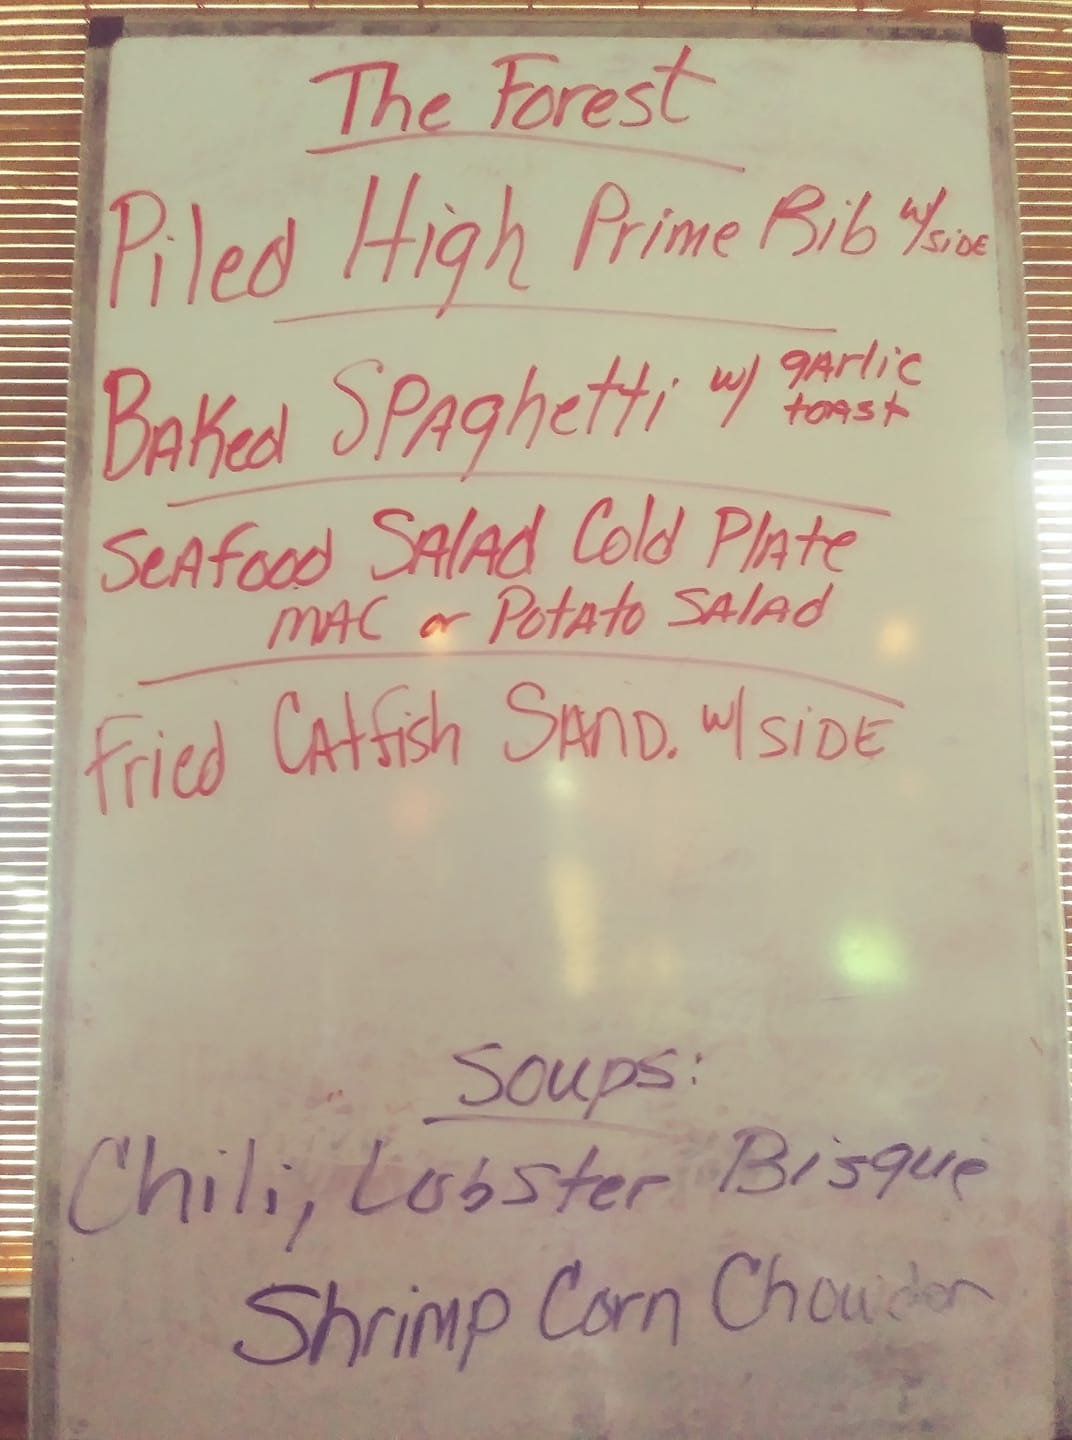 The Forest
Piled High Prime Rib w/ side
Baked Spaghetti w/ garlic toast
Seafood Salad Cold Plate
Mac or Potato Salad
Fried Catfish Sand. w/ side
Soups:
Chili, Lobster Bisque
Shrimp Corn Chowder